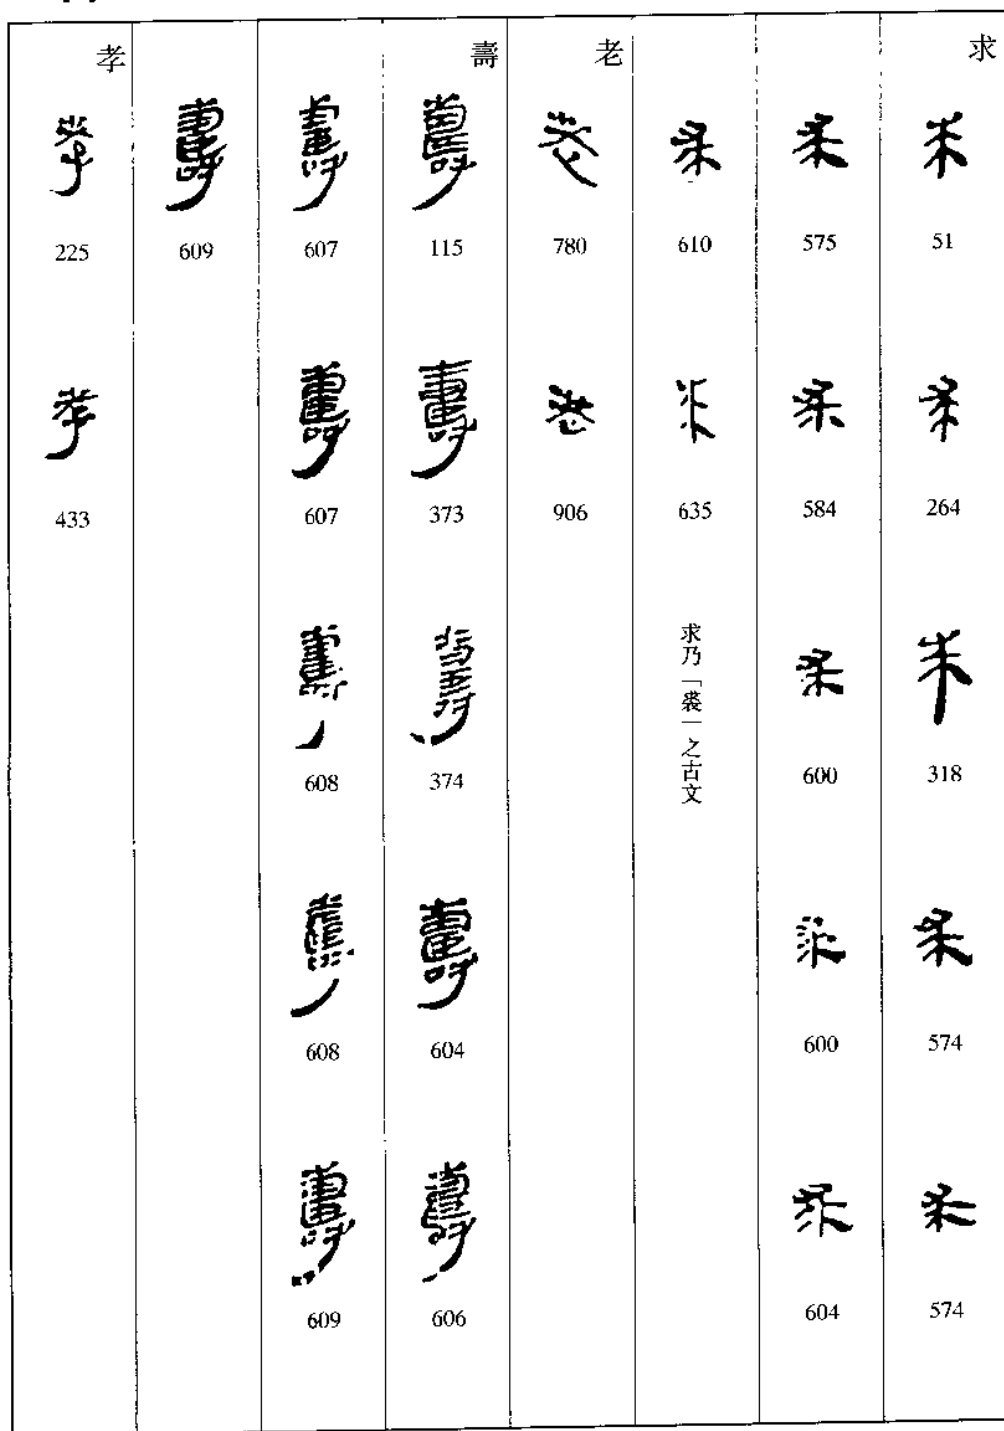 求
51
264
318
574
574
575
584
600
600
604
610
635
求乃「裘」之古文
老
780
906
壽
115
373
374
604
606
607
607
608
608
609
609
孝
225
433